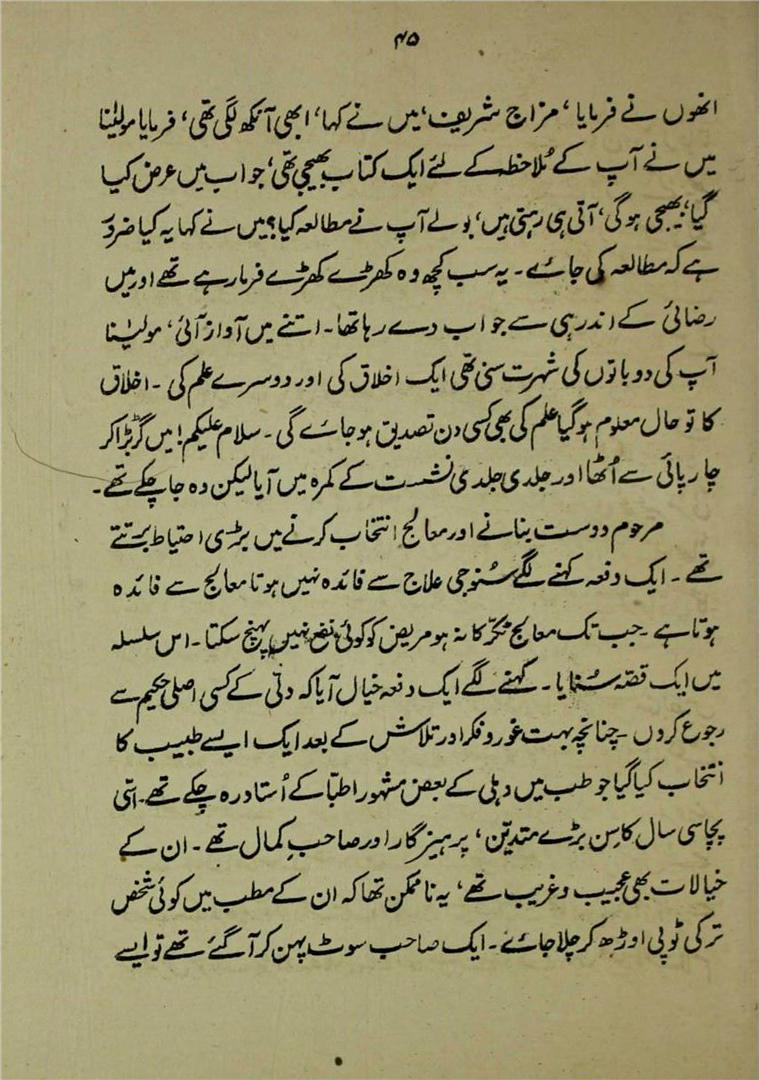 ۴۵
انھوں نے فرمایا، مزاج شریف، میں نے کہا، ابھی آنکھ لگی تھی، فرمایا مولیٰنا
میں نے آپ کے مُلاحظہ کے لئے ایک کتاب بھیجی تھی، جواب میں عرض کیا
گیا، بھیجی ہوگی، آتی ہی رہتی ہیں، بولے آپ نے مطالعہ کیا؟ میں نے کہا یہ کیا ضرور
ہے کہ مطالعہ کی جائے۔ یہ سب کچھ وہ کھڑے کھڑے فرما رہے تھے اور میں
رضائی کے اندر ہی سے جواب دے رہا تھا۔ اتنے میں آواز آئی، مولیٰنا
آپ کی دو باتوں کی شہرت سنی تھی ایک اخلاق کی اور دوسرے علم کی۔ اخلاق
کا تو حال معلوم ہو گیا علم کی بھی کسی دن تصدیق ہو جائے گی۔ سلام علیکم! میں گڑبڑا کر
چارپائی سے اُٹھا اور جلدی جلدی نشست کے کمرہ میں آیا لیکن وہ جا چکے تھے۔
مرحوم دوست بنانے اور معالج انتخاب کرنے میں بڑی احتیاط برتتے
تھے۔ ایک دفعہ کہنے لگے سُنو جی علاج سے فائدہ نہیں ہوتا معالج سے فائدہ
ہوتا ہے۔ جب تک معالج ٹکّر کا نہ ہو مریض کو کوئی نفع نہیں پہنچ سکتا۔ اس سلسلہ
میں ایک قصّہ سُنایا۔ کہنے لگے ایک دفعہ خیال آیا کہ دلّی کے کسی اصلی حکیم سے
رجوع کروں۔ چنانچہ بہت غور و فکر اور تلاش کے بعد ایک ایسے طبیب کا
انتخاب کیا گیا جو طب میں دہلی کے بعض مشہور اطبّا کے اُستاد رہ چکے تھے۔ اسّی
پچاسی سال کا سِن بڑے متدیّن، پرہیزگار اور صاحبِ کمال تھے۔ ان کے
خیالات بھی عجیب و غریب تھے، یہ ناممکن تھا کہ ان کے مطب میں کوئی شخص
ترکی ٹوپی اوڑھ کر چلا جائے۔ ایک صاحب سوٹ پہن کر آگئے تھے تو ایسے